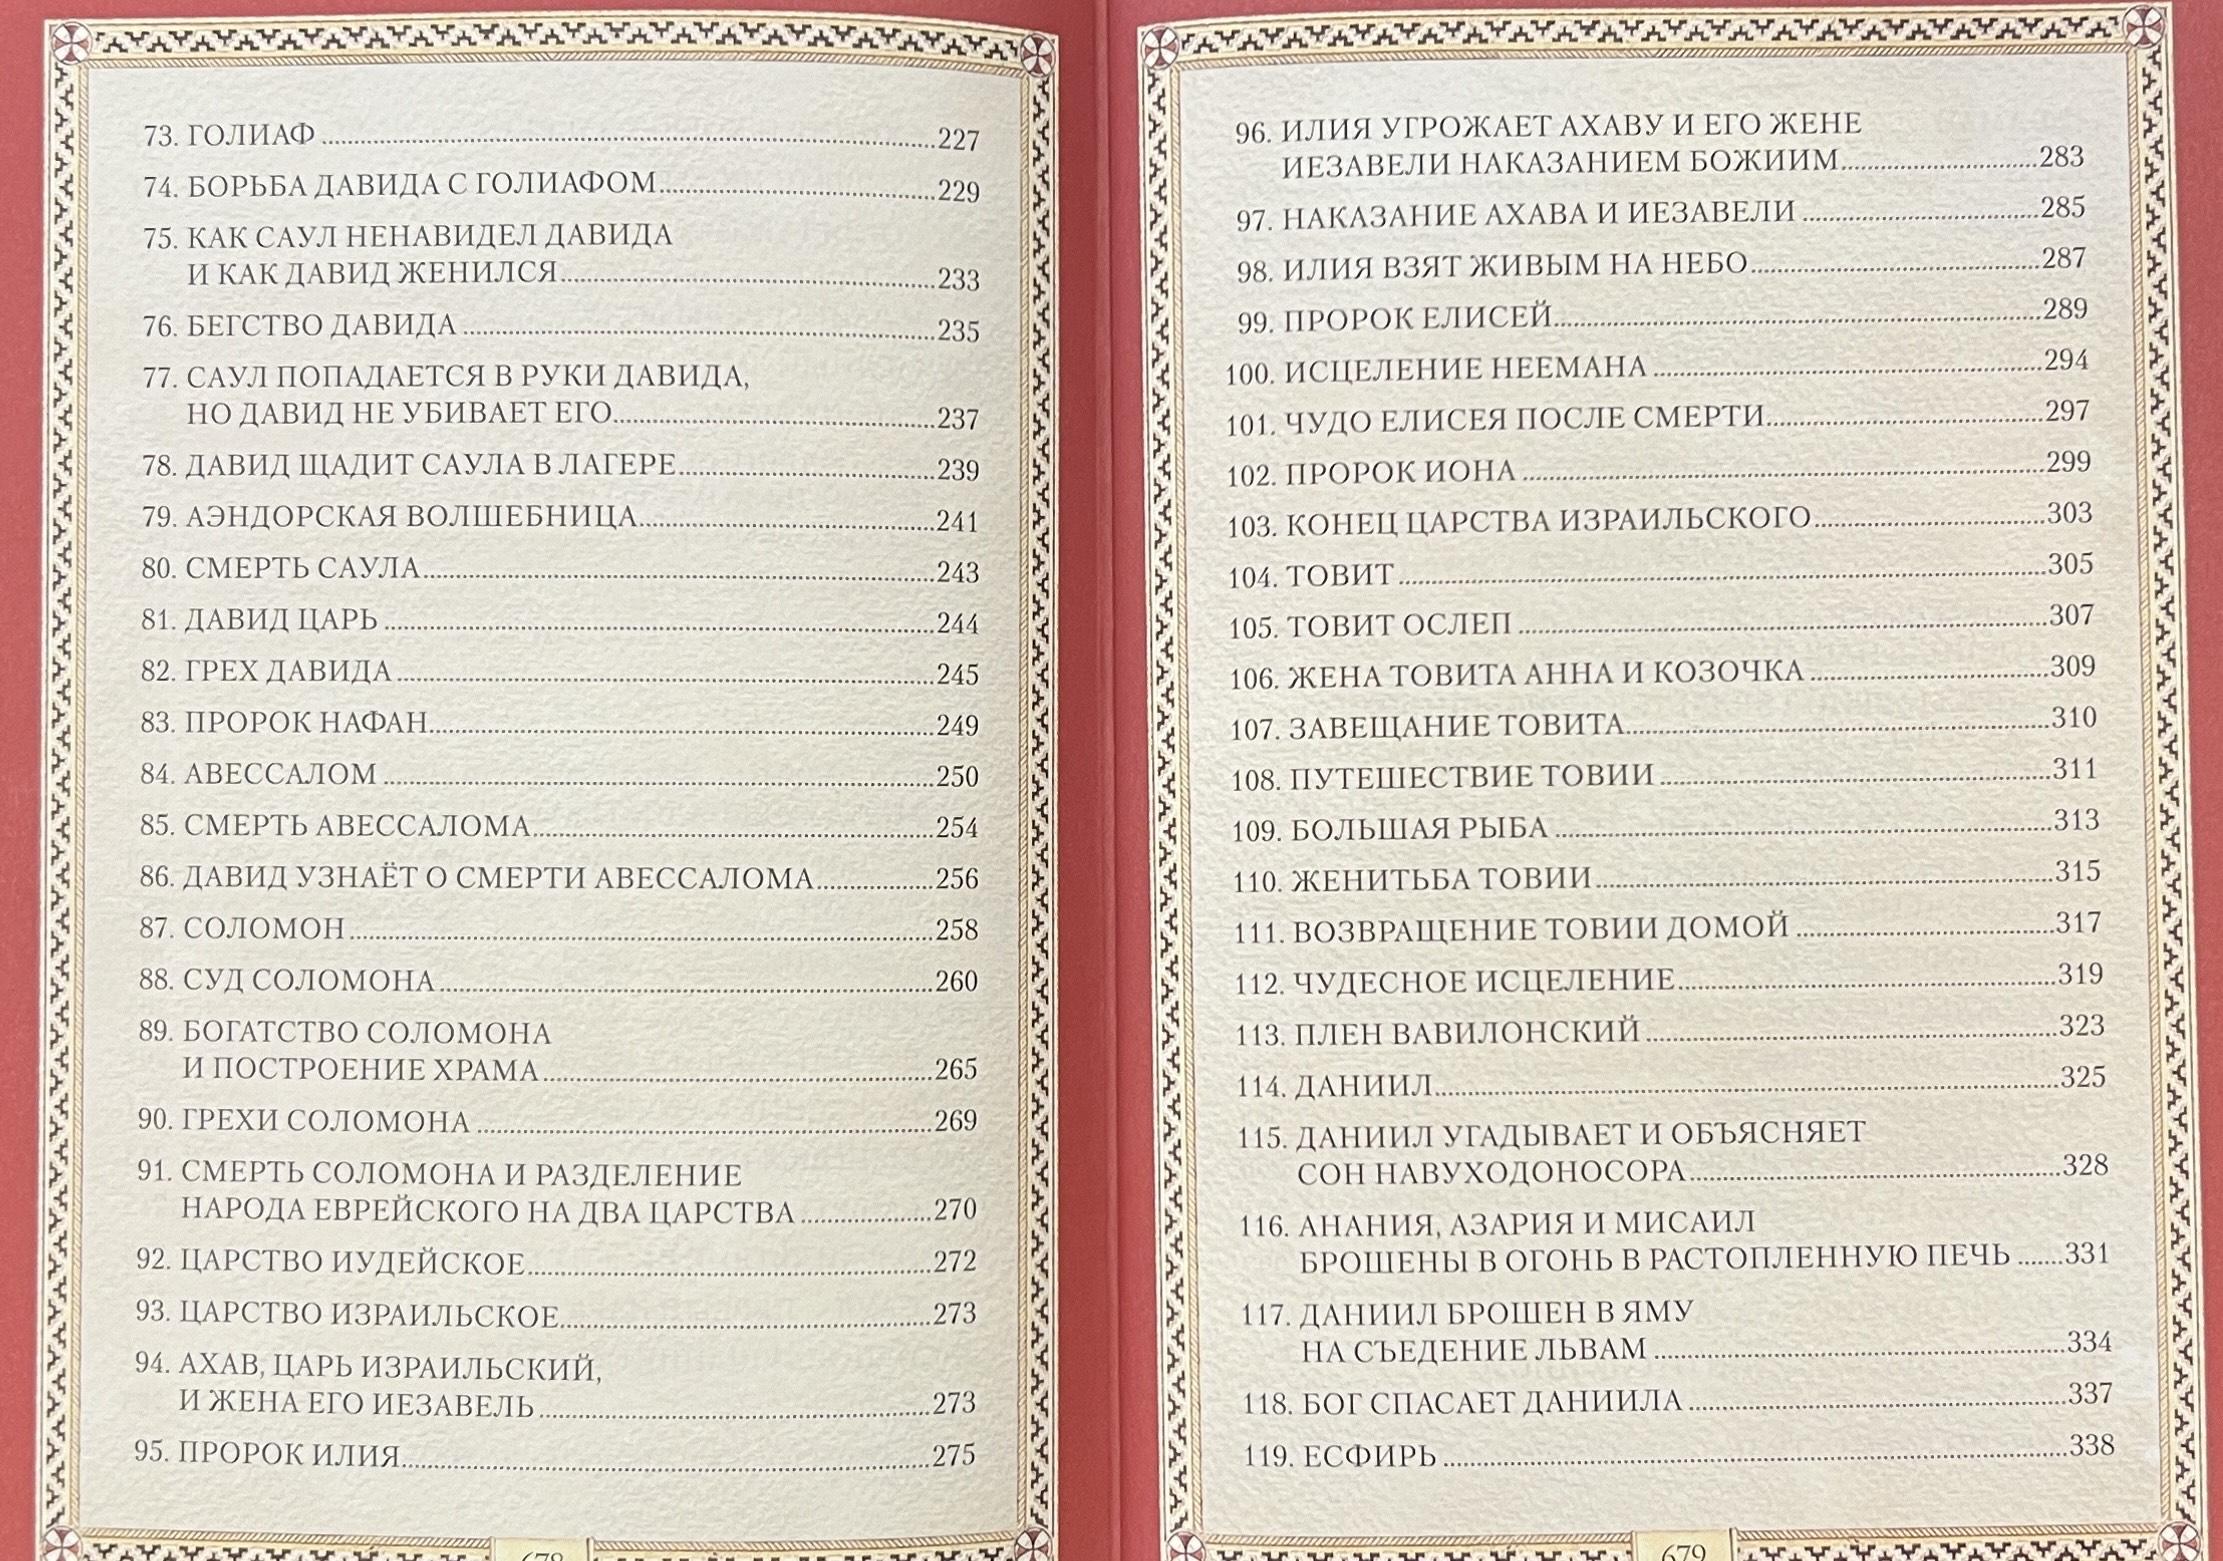 73. ГОЛИАФ ........ 227
74. БОРЬБА ДАВИДА С ГОЛИАФОМ ........ 229
75. КАК САУЛ НЕНАВИДЕЛ ДАВИДА
И КАК ДАВИД ЖЕНИЛСЯ ........ 233
76. БЕГСТВО ДАВИДА ........ 235
77. САУЛ ПОПАДАЕТСЯ В РУКИ ДАВИДА,
НО ДАВИД НЕ УБИВАЕТ ЕГО ........ 237
78. ДАВИД ЩАДИТ САУЛА В ЛАГЕРЕ ........ 239
79. АЭНДОРСКАЯ ВОЛШЕБНИЦА ........ 241
80. СМЕРТЬ САУЛА ........ 243
81. ДАВИД ЦАРЬ ........ 244
82. ГРЕХ ДАВИДА ........ 245
83. ПРОРОК НАФАН ........ 249
84. АВЕССАЛОМ ........ 250
85. СМЕРТЬ АВЕССАЛОМА ........ 254
86. ДАВИД УЗНАЁТ О СМЕРТИ АВЕССАЛОМА ........ 256
87. СОЛОМОН ........ 258
88. СУД СОЛОМОНА ........ 260
89. БОГАТСТВО СОЛОМОНА
И ПОСТРОЕНИЕ ХРАМА ........ 265
90. ГРЕХИ СОЛОМОНА ........ 269
91. СМЕРТЬ СОЛОМОНА И РАЗДЕЛЕНИЕ
НАРОДА ЕВРЕЙСКОГО НА ДВА ЦАРСТВА ........ 270
92. ЦАРСТВО ИУДЕЙСКОЕ ........ 272
93. ЦАРСТВО ИЗРАИЛЬСКОЕ ........ 273
94. АХАВ, ЦАРЬ ИЗРАИЛЬСКИЙ,
И ЖЕНА ЕГО ИЕЗАВЕЛЬ ........ 273
95. ПРОРОК ИЛИЯ ........ 275
678
96. ИЛИЯ УГРОЖАЕТ АХАВУ И ЕГО ЖЕНЕ
ИЕЗАВЕЛИ НАКАЗАНИЕМ БОЖИИМ ........ 283
97. НАКАЗАНИЕ АХАВА И ИЕЗАВЕЛИ ........ 285
98. ИЛИЯ ВЗЯТ ЖИВЫМ НА НЕБО ........ 287
99. ПРОРОК ЕЛИСЕЙ ........ 289
100. ИСЦЕЛЕНИЕ НЕЕМАНА ........ 294
101. ЧУДО ЕЛИСЕЯ ПОСЛЕ СМЕРТИ ........ 297
102. ПРОРОК ИОНА ........ 299
103. КОНЕЦ ЦАРСТВА ИЗРАИЛЬСКОГО ........ 303
104. ТОВИТ ........ 305
105. ТОВИТ ОСЛЕП ........ 307
106. ЖЕНА ТОВИТА АННА И КОЗОЧКА ........ 309
107. ЗАВЕЩАНИЕ ТОВИТА ........ 310
108. ПУТЕШЕСТВИЕ ТОВИИ ........ 311
109. БОЛЬШАЯ РЫБА ........ 313
110. ЖЕНИТЬБА ТОВИИ ........ 315
111. ВОЗВРАЩЕНИЕ ТОВИИ ДОМОЙ ........ 317
112. ЧУДЕСНОЕ ИСЦЕЛЕНИЕ ........ 319
113. ПЛЕН ВАВИЛОНСКИЙ ........ 323
114. ДАНИИЛ ........ 325
115. ДАНИИЛ УГАДЫВАЕТ И ОБЪЯСНЯЕТ
СОН НАВУХОДОНОСОРА ........ 328
116. АНАНИЯ, АЗАРИЯ И МИСАИЛ
БРОШЕНЫ В ОГОНЬ В РАСТОПЛЕННУЮ ПЕЧЬ ........ 331
117. ДАНИИЛ БРОШЕН В ЯМУ
НА СЪЕДЕНИЕ ЛЬВАМ ........ 334
118. БОГ СПАСАЕТ ДАНИИЛА ........ 337
119. ЕСФИРЬ ........ 338
679